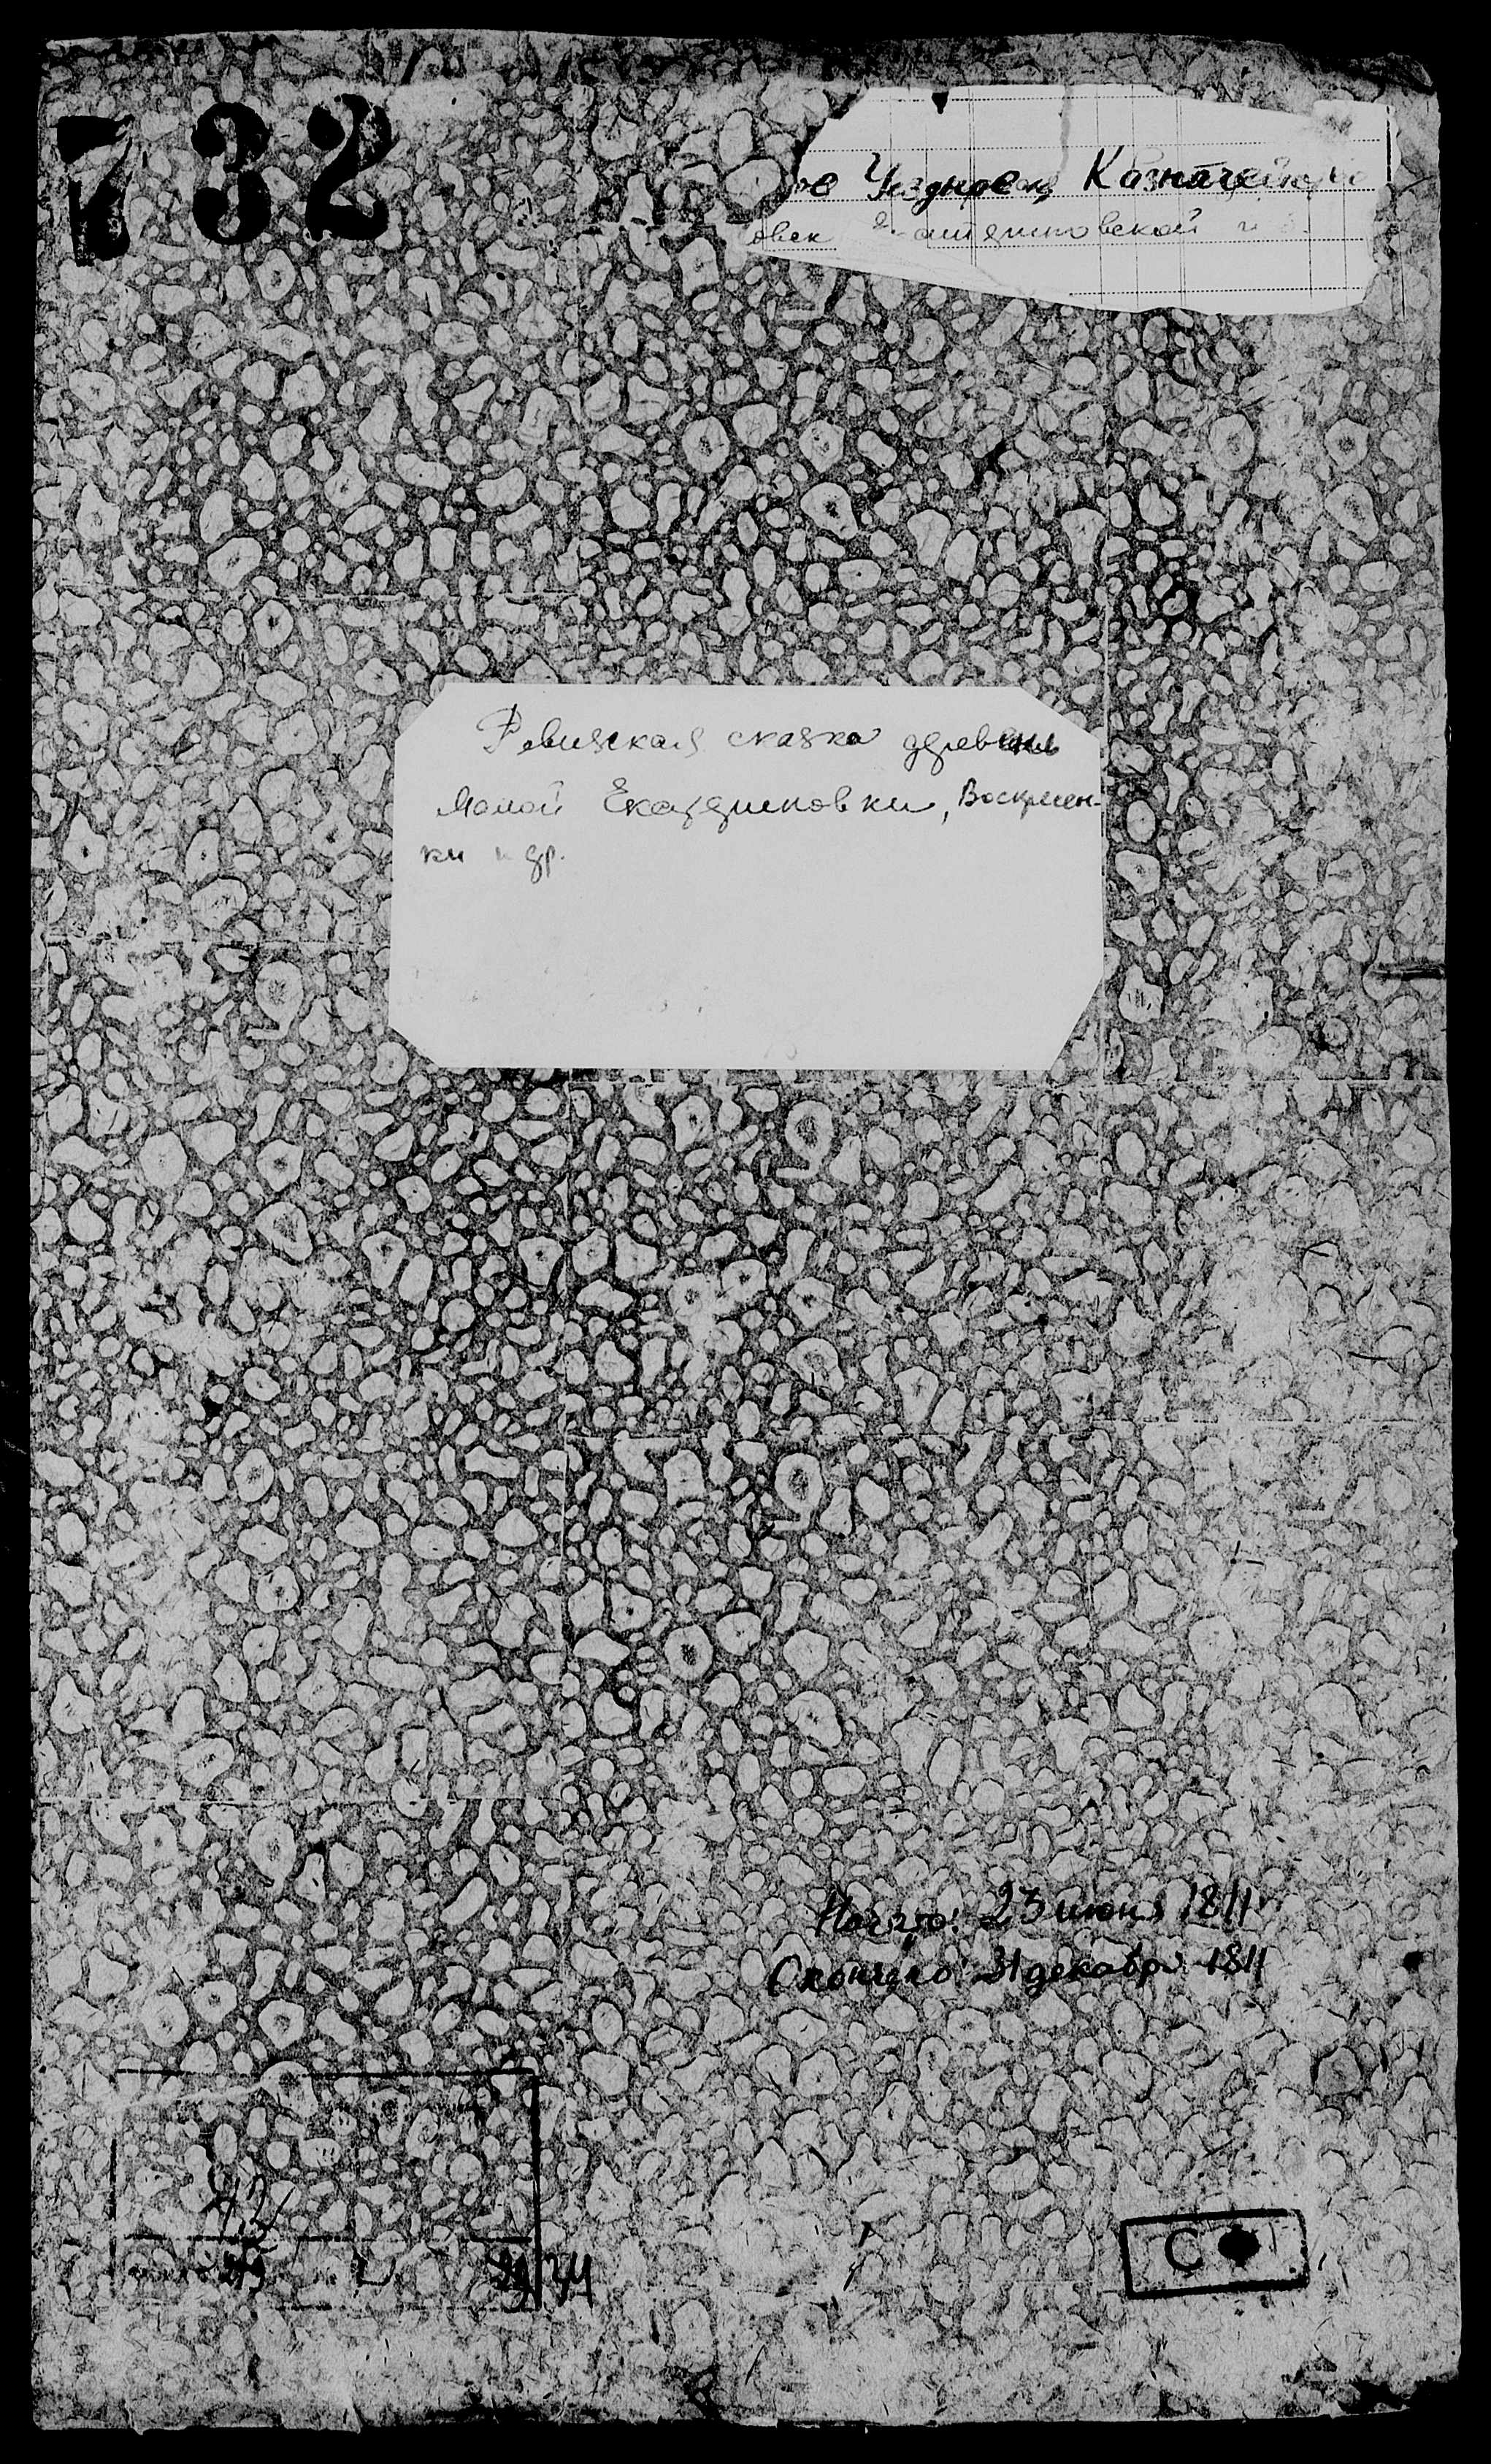 732
Уездное Казначейство
овск
Ревизская сказка деревень
Малой Екатериновки, Воскресен-
ки и др.
Начато: 23 июня 1811
Окончено: 31 декабря 1811
42
34
С